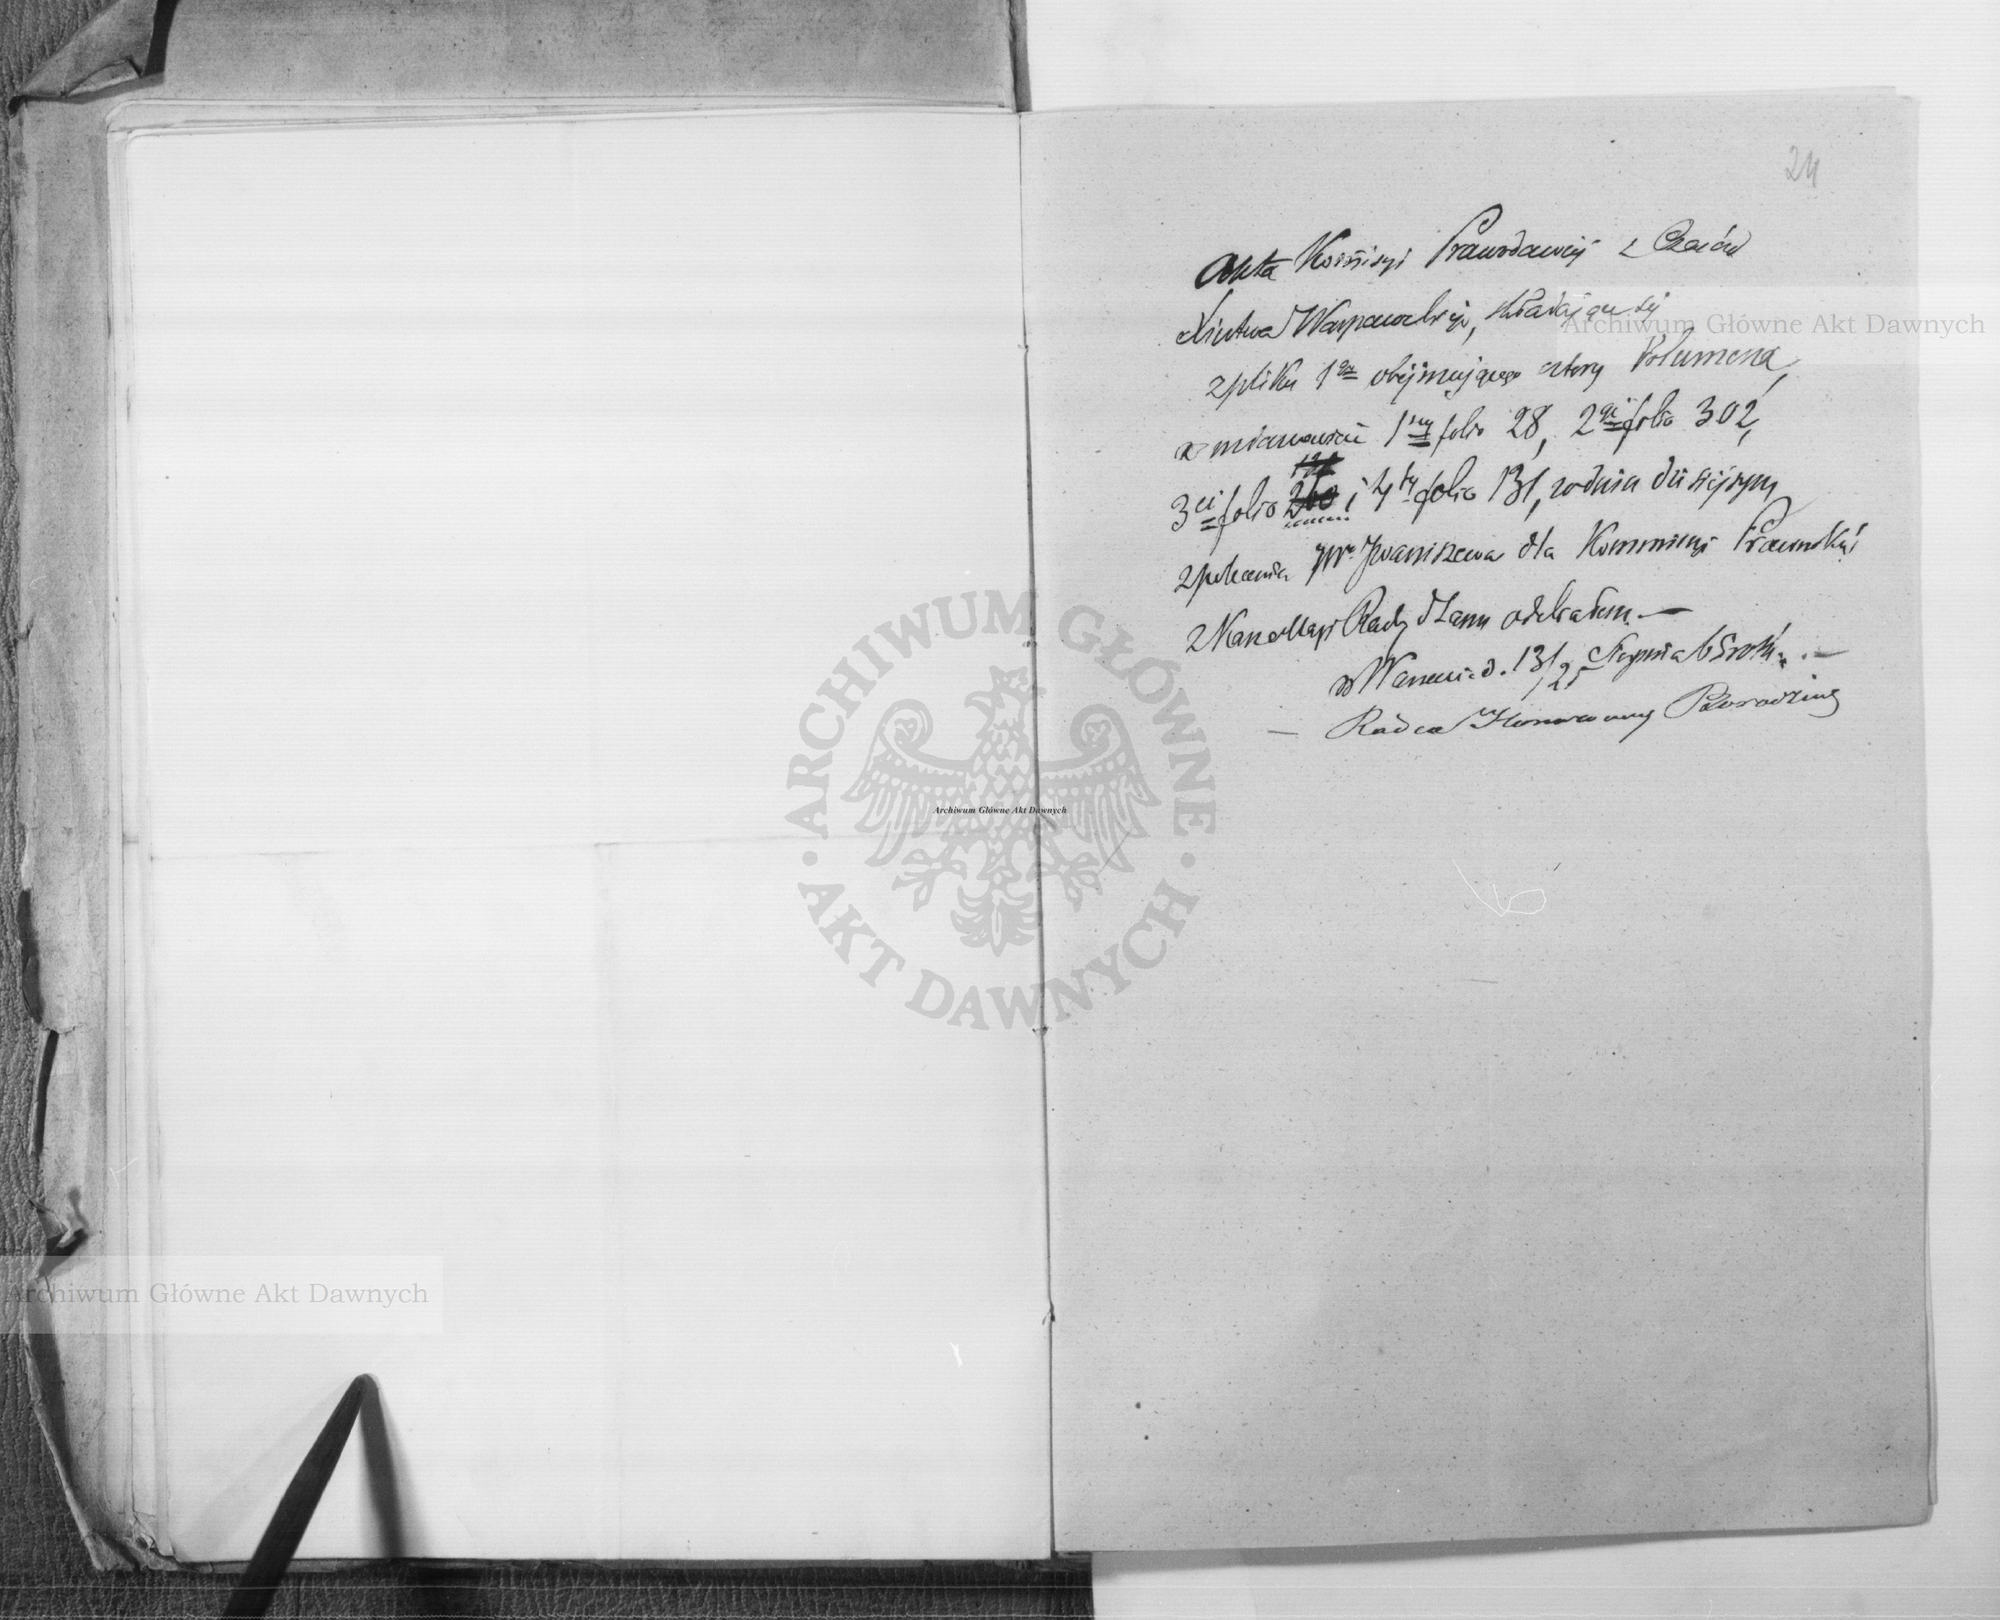 24
Akta Komisyi Prawodawczej z Czasów
Xięstwa Warszawskiego, składające się
z pliku 1go obejmującego cztery Volumena,
a mianowicie 1szy folio 28, 2gi folio 302,
3ci folio 260 i 4ty folio 131, w dniu dzisiejszym
z polecenia JW. Iwaniszewa dla Kommisyi Prawnskiéj
z Kancellaryi Rady Stanu odebrałem.—
w Warszawie d. 13/25 Sierpnia 65 roku.—
— Radca Honorowy
Archiwum Główne Akt Dawnych
Archiwum Główne Akt Dawnych
Archiwum Główne Akt Dawnych
ARCHIWUM GŁÓWNE · AKT DAWNYCH ·